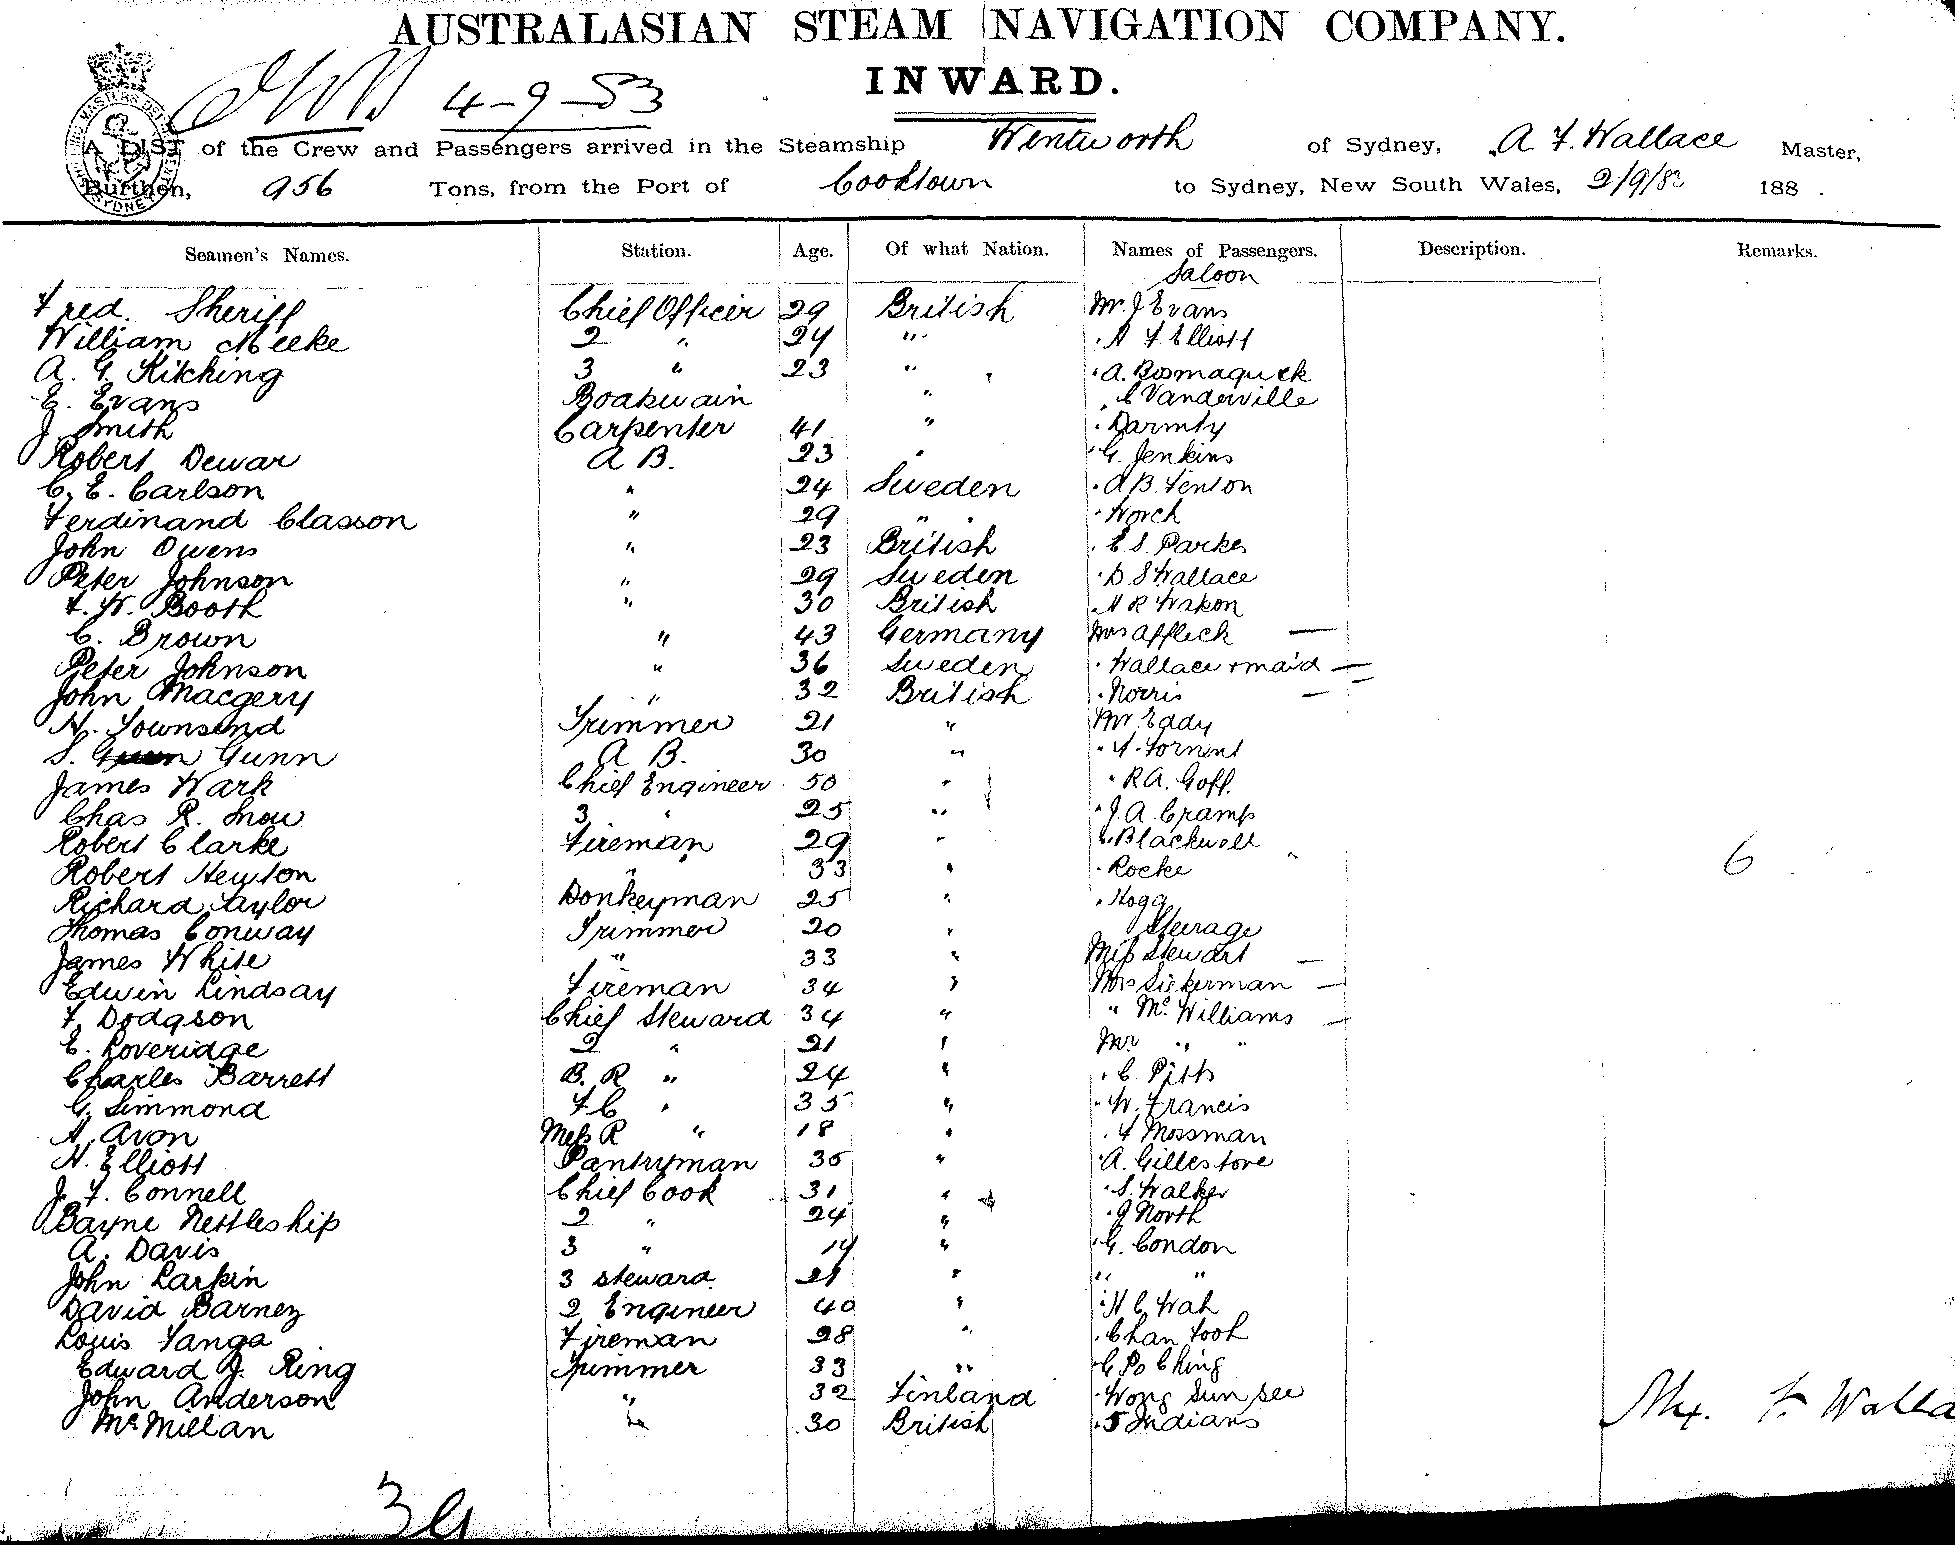 AUSTRALASIAN STEAM NAVIGATION COMPANY.
INWARD.
4-9-83
A LIST of the Crew and Passengers arrived in the Steamship Wentworth of Sydney, A F. Wallace Master,
Burthen, 956 Tons, from the Port of Cooktown to Sydney, New South Wales, 2/9/83 188 .
Seamen's Names. Station. Age. Of what Nation. Names of Passengers. Description. Remarks.
Saloon
Fred. Sheriff Chief Officer 29 British Mr. J Evans
William Meeke 2 " 24 " " A F Elliott
A. G. Kitching 3 " 23 " " A.
E. Evans Boatswain " " C Vanderville
J. Smith Carpenter 41 " "
Robert Dewar A B. 23 " " G. Jenkins
C. E. Carlson " 24 Sweden " A B. Fenton
Ferdinand Classon " 29 " "
John Owens " 23 British " E S. Parkes
Peter Johnson " 29 Sweden " D S Wallace
F. W. Booth " 30 British "
C. Brown " 43 Germany Mrs Affleck —
Peter Johnson " 36 Sweden " Wallace + maid —
John Macgery " 32 British " Norris —
H. Townsend Trimmer 21 " Mr Eddy
S. Gunn A B. 30 " "
James Wark Chief Engineer 50 " " R A. Goff.
Chas R. Snow 3 " 25 " " J. A. Cramp
Robert Clarke Fireman 29 " " Blackwell
Robert Newton " 33 " " Rocke 6
Richard Taylor Donkeyman 25 " " Hogg
Thomas Conway Trimmer 20 " Steerage
James White " 33 " Miss Stewart —
Edwin Lindsay Fireman 34 " Mrs Sickerman —
F. Dodgson Chief Steward 34 " " Mc Williams —
E. Loveridge 2 " 21 " Mr " "
Charles Barrett B. R " 24 " " C. Pitts
G. Simmond F C " 35 " " W. Francis
A. Avon Mess R " 18 " " F Mossman
H. Elliott Pantryman 35 " " A. Gillestove
J. F. Connell Chief Cook 31 " " S. Walker
Bayne Nettleship 2 " 24 " " J North
A. Davis 3 " 19 " " G. Condon
John Larkin 3 steward 21 " " "
David Barnez 2 Engineer 40 " " H C Wah
Louis Tanga Fireman 28 " " Chan Fook
Edward J. Ring Trimmer 33 " " G Po Ching
John Anderson " 32 Finland " Wong Sun See
McMillan " 30 British " 5 Indians
Alex. F. Walla
39